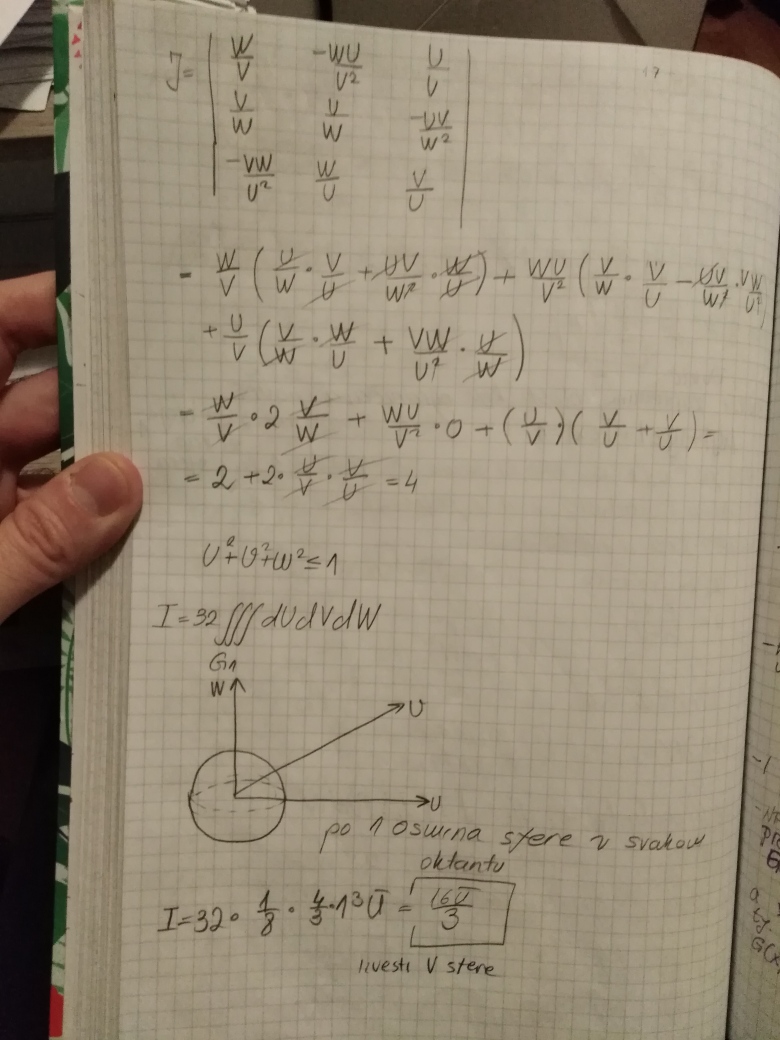 J = | W/V -WU/V² U/V |
| V/W U/W -UV/W² |
| -VW/U² W/U V/U |
= W/V (U/W · V/U + UV/W² · W/U) + WU/V² (V/W · V/U - UV/W² · VW/U²)
+ U/V (V/W · W/U + VW/U² · U/W)
= W/V · 2 V/W + WU/V² · 0 + (U/V)(V/U + V/U) =
= 2 + 2 · U/V · V/U = 4
U² + V² + W² ≤ 1
I = 32 ∭ dU dV dW
G1
W
U
U
po 1 osmina sfere v svakom
oktantu
I = 32 · 1/8 · 4/3 · 1³ π = 16π/3
izvesti V sfere